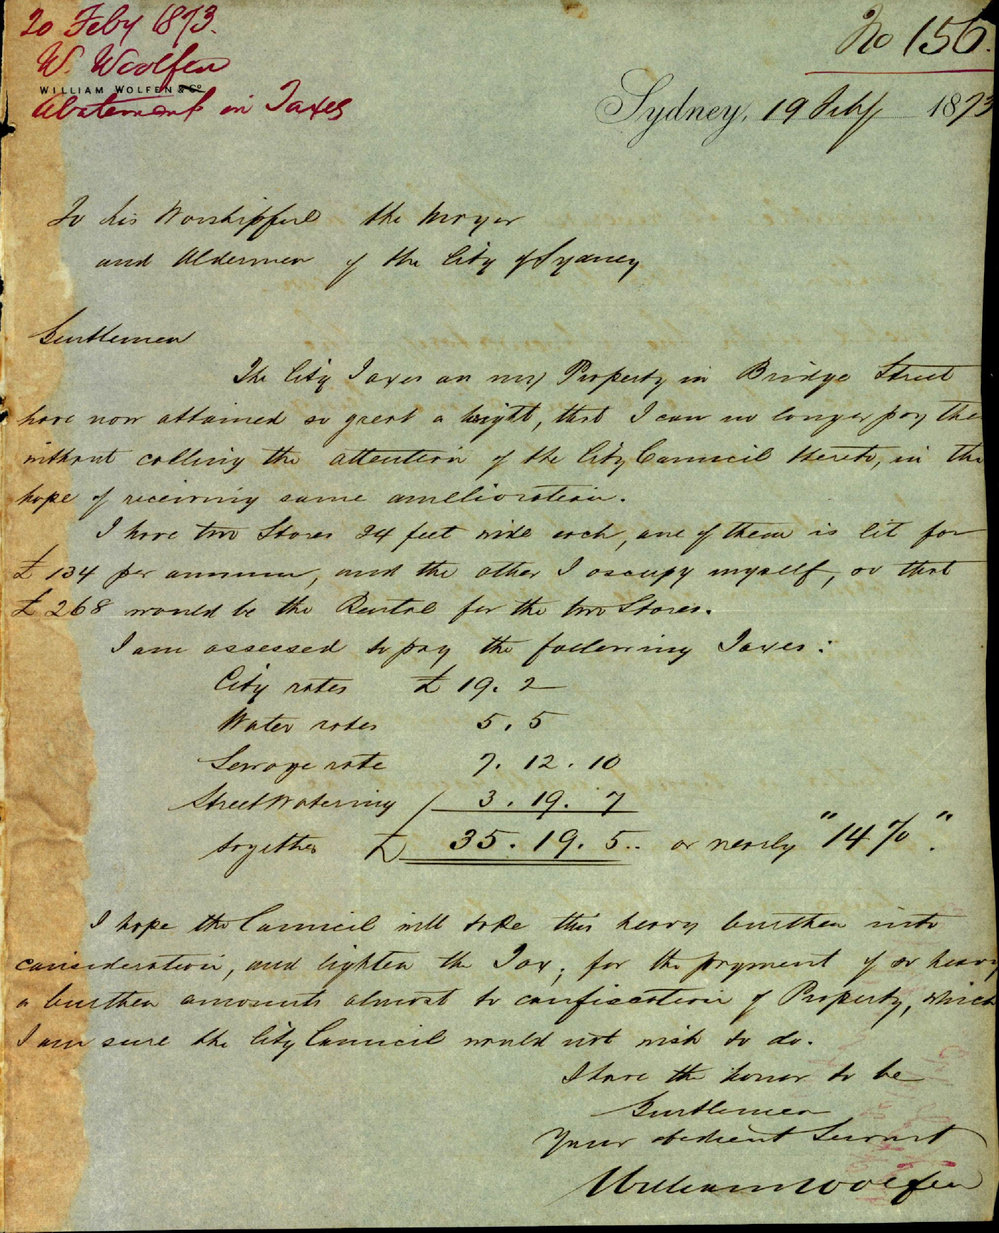 20 Feby 1873.
W. Woolfen
WILLIAM WOLFEN & Co
Abatement in Taxes
No 156.
Sydney, 19 Feby 1873
To his Worshipful the Mayor
and Aldermen of the City of Sydney
Gentlemen
The City Taxes on my Property in Bridge Street
have now attained so great a hight, that I can no longer pay the
without calling the attention of the City Council thereto, in the
hope of receiving some amelioration.
I have two Stores 24 feet wide each, one of them is let for
£ 134 per annum, and the other I occupy myself, so that
£ 268 would be the Rental for the two Stores.
I am assessed to pay the following Taxes:
City rates £ 19. 2
Water rates 5. 5
Sewage rate 7. 12. 10
Street Watering 3. 19. 7
together £ 35. 19. 5.. or nearly "14%".
I hope the Council will take this heavy burthen into
consideration, and lighten the Tax; for the payment of so heavy
a burthen amounts almost to confiscation of Property, which
I am sure the City Council would not wish to do.
I have the honor to be
Gentlemen
Your obedient Servant
William Woolfen